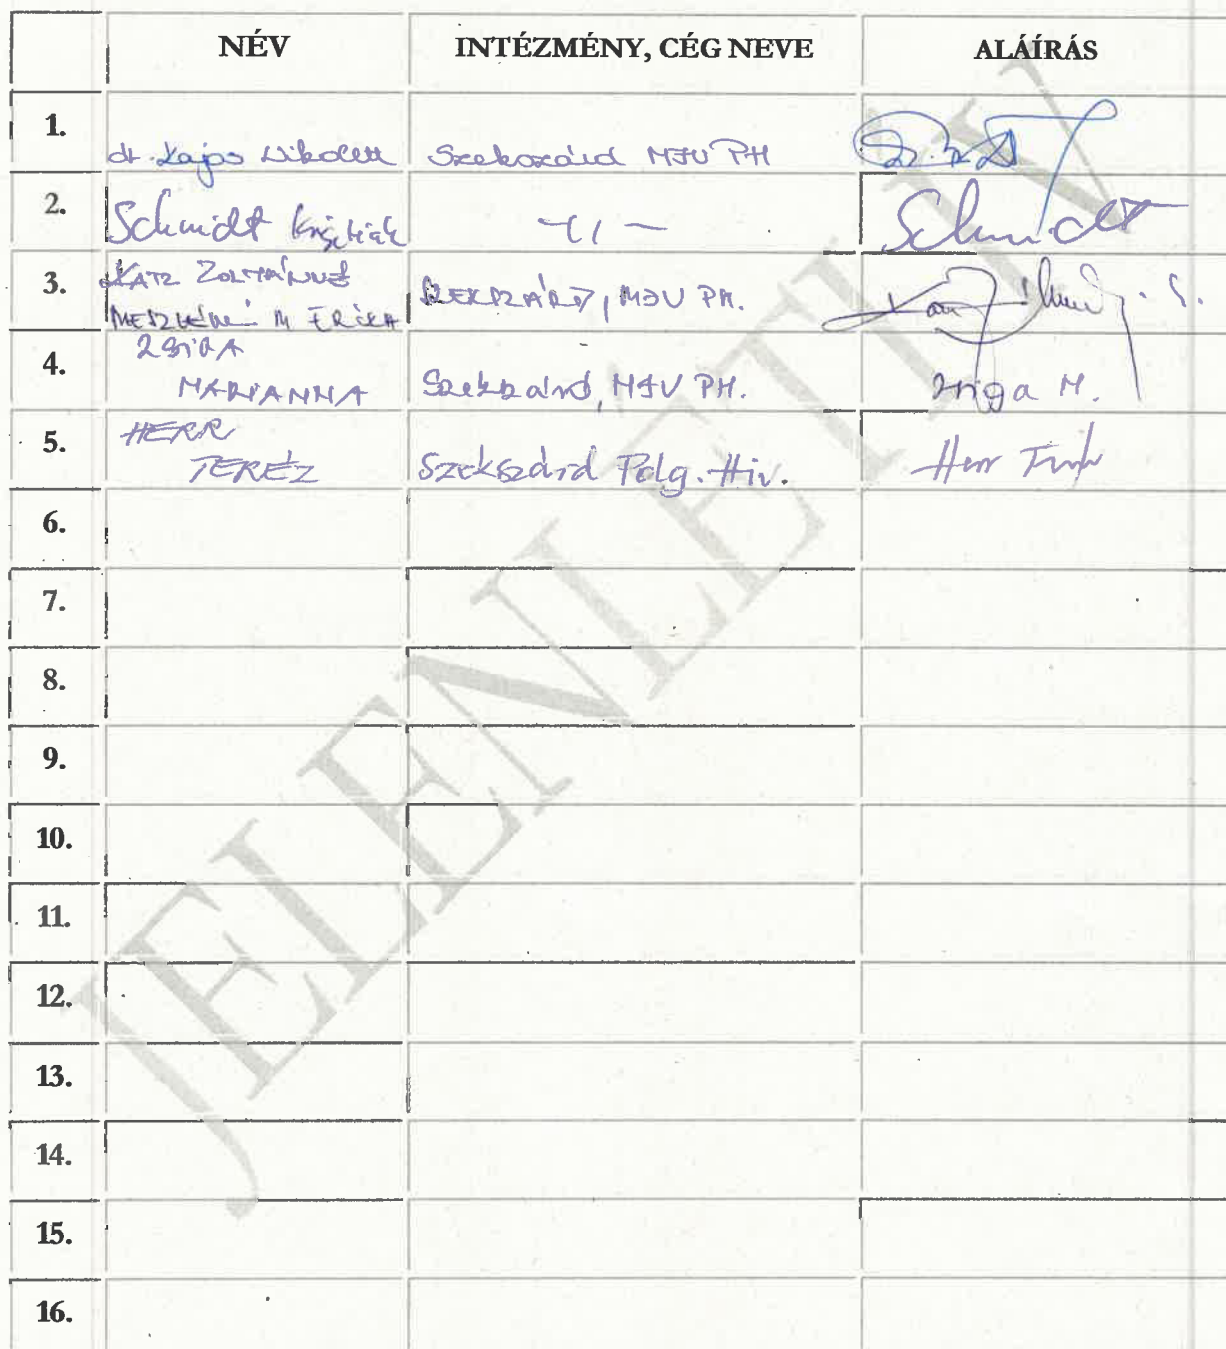 NÉV INTÉZMÉNY, CÉG NEVE ALÁÍRÁS
1. dr. Kajos Nikolett Szekszárd MJV PH
2. Schmidt Krisztián -11- Schmidt
3. KATZ ZOLTÁNNÉ
SZEKSZÁRD, MJV PH.
M ERIKA
4. ZSIGA
MARIANNA Szekszárd, MJV PH. Zsiga M.
5. HERR
TERÉZ Szekszárd Polg. Hiv. Herr Teréz
6.
7.
8.
9.
10.
11.
12.
13.
14.
15.
16.
JELENLÉTI ÍV